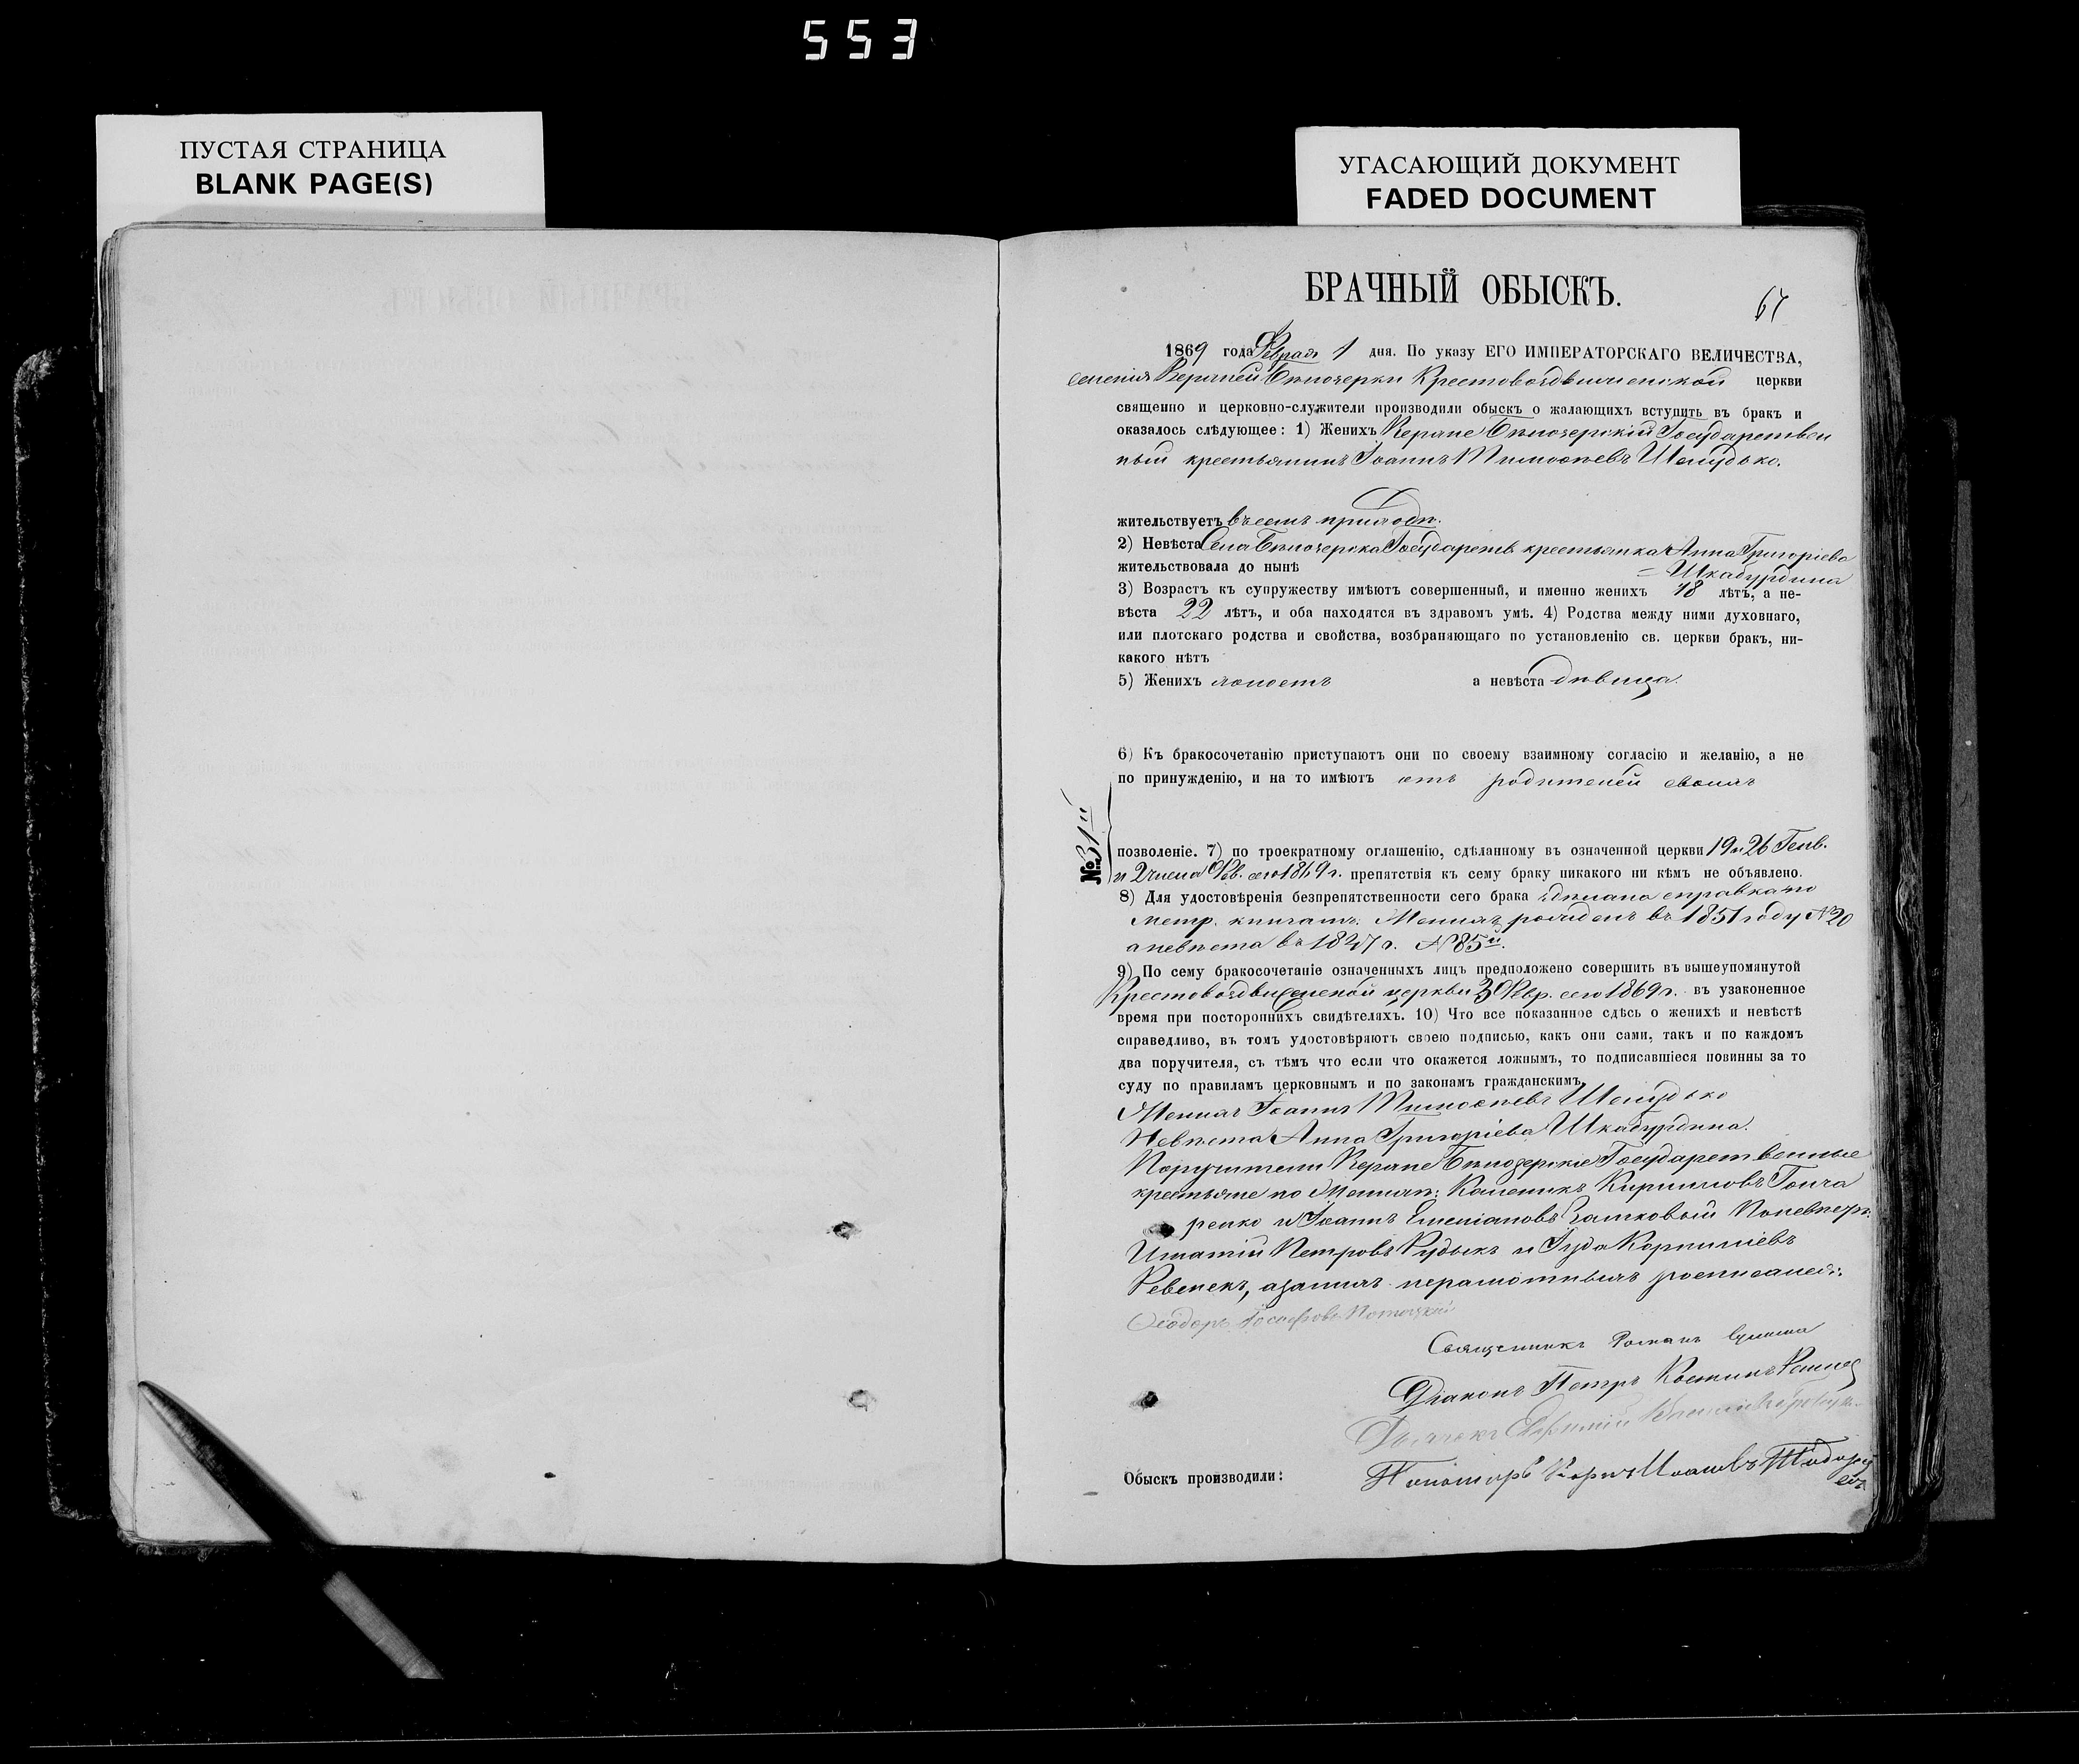 553
ПУСТАЯ СТРАНИЦА
BLANK PAGE(S)
УГАСАЮЩИЙ ДОКУМЕНТ
FADED DOCUMENT
БРАЧНЫЙ ОБЫСКЪ.
67
1869 года Феврал 1 дня. По указу ЕГО ИМПЕРАТОРСКАГО ВЕЛИЧЕСТВА,
селенія Верхней Бѣлозерки Крестовоздвиженской церкви
священно и церковно-служители производили обыскъ о жалающихъ вступить въ бракъ и
оказалось слѣдующее: 1) Женихъ Верхне Бѣлозерскій Государствен
ный крестьянинъ Іоаннъ Тимоѳеевъ Шелудько.
жительствуетъ въ семъ приходѣ.
2) Невѣста Села Бѣлозерска Государств крестьянка Анна Григоріева
жительствовала до нынѣ = Шкабурдина
3) Возрастъ къ супружеству имѣютъ совершенный, и именно женихъ 18 лѣтъ, а не-
вѣста 22 лѣтъ, и оба находятся въ здравомъ умѣ. 4) Родства между ними духовнаго,
или плотскаго родства и свойства, возбраняющаго по установленію св. церкви бракъ, ни-
какого нѣтъ
5) Женихъ холостъ а невѣста дѣвица.
6) Къ бракосочетанію приступаютъ они по своему взаимному согласію и желанію, а не
по принужденію, и на то имѣютъ отъ родителей своихъ
№ 31й
позволеніе. 7) по троекратному оглашенію, сдѣланному въ означенной церкви 19 и 26 Генв.
и 2 числа Фев. сего 1869 г. препятствія къ сему браку никакого ни кѣмъ не объявлено.
8) Для удостовѣренія безпрепятственности сего брака дѣлана справка по
метр. книгамъ: Женихъ рожденъ въ 1851 году № 20
а невѣста въ 1847 г. № 85й.
9) По сему бракосочетаніе означенныхъ лицъ предположено совершить въ вышеупомянутой
Крестовоздвиженской церкви 3 Февр. сего 1869 г. въ узаконенное
время при постороннихъ свидѣтеляхъ. 10) Что все показанное сдѣсь о женихѣ и невѣстѣ
справедливо, въ томъ удостовѣряютъ своею подписью, какъ они сами, такъ и по каждомъ
два поручителя, съ тѣмъ что если что окажется ложнымъ, то подписавшіеся повинны за то
суду по правиламъ церковнымъ и по законамъ гражданскимъ.
Женихъ Іоаннъ Тимоѳеевъ Шелудько
Невѣста Анна Григоріева Шкабурдина.
Поручители Верхне Бѣлозерскіе Государственные
крестьяне по Женихѣ: Каленикъ Кирилловъ Гонча
ренко и Іоаннъ Емеліановъ По невѣстѣ:
Игнатій Петровъ Рудыкъ и Іуда Корниліевъ
а за нихъ неграмотныхъ росписался:
Ѳеодоръ Іосифовъ
Священникъ Романъ
Діаконъ Петръ
Дьячокъ Евфимій
Обыскъ производили: Пономарь